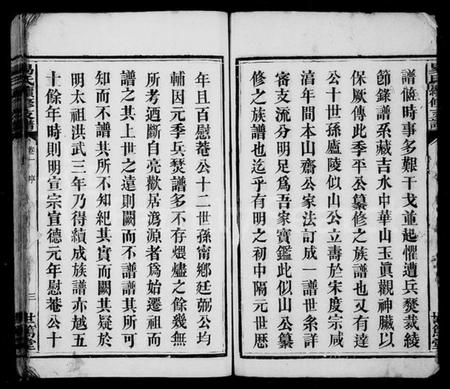 譜僃時事多艱干戈並起懼遭兵焚裁綾
節錄譜系藏吉水中華山玉眞觀神臟以
保厥傳此季平公纂修之族譜也又有達
公十世孫廬陵似山公立壽於宋度宗咸
淳年間本山齋公家法訂成一譜世系詳
審支流分明足爲吾家寶鑑此似山公纂
修之族譜也迄乎有明之初中隔元世歷
年且百慰菴公十二世孫衛鄉廷弼公均
輔因元季兵焚譜多不存煨燼之餘幾無
所考迺斷自亮歡居溈源者爲始遷祖而
譜之其上世之遠則闕而不譜譜其所可
知而不譜其所不知紀其實也闕其疑於
明太祖洪武三年乃得續成族譜亦越五
十餘年時則明宣宗宣德元年慰菴公十
易氏續修支譜
卷一 序
三
世篤堂